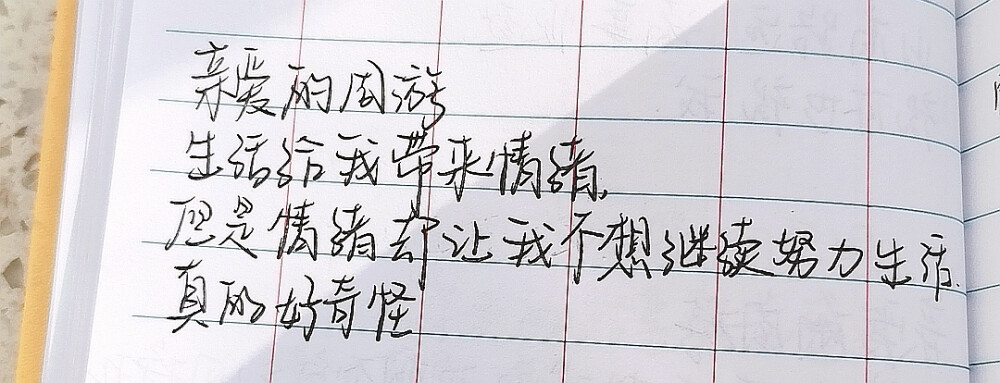 亲爱的周游
生活给我带来情绪,
但是情绪却让我不想继续努力生活.
真的好奇怪